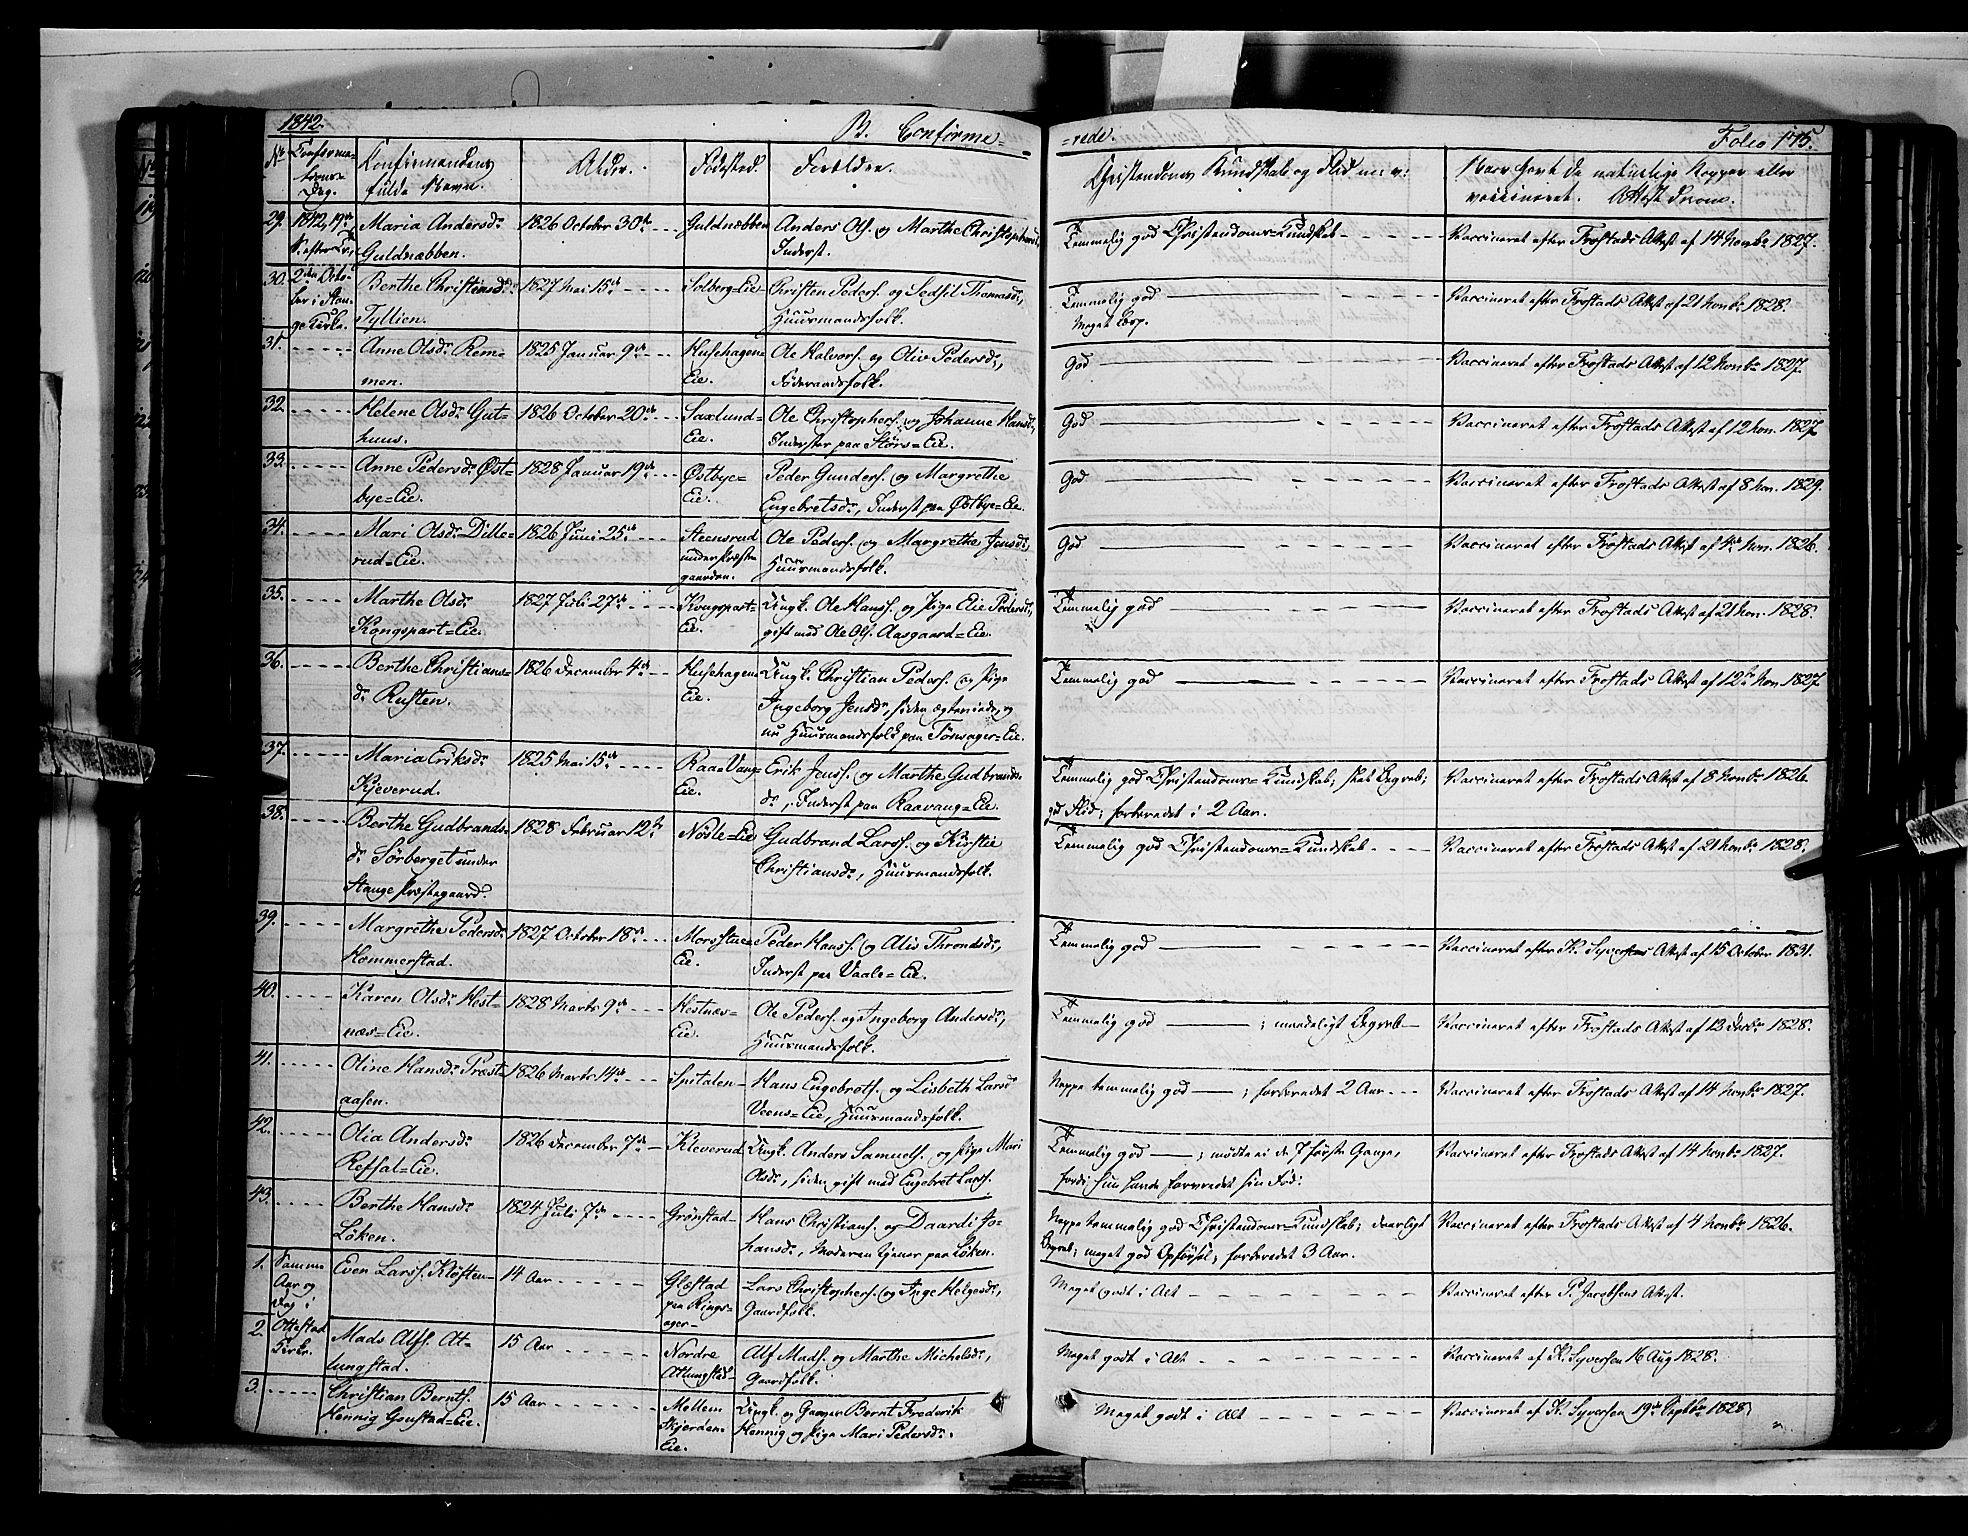 1842. B. Confirme=
=rede. Folio 175.
No Confirma-
tions-
Dag. Confirmandens
fulde Navn. Alder. Födested. Forældre. Christendoms Kundskab og Flid m: v: Have havt de naturlige Kopper eller
vaccineret. Attest derom.
29. 1842, 19de
S. efter Tr. Maria Andersdr
Guldnæbben. 1826 October 30te Guldnæbben Anders Ols. og Marthe Christophersdr,
Inderst. Temmelig god Christendoms=Kundskab Vaccineret efter Frostads Attest af 14 Novbr 1827.
30. 2den Octo-
ber i Stan-
ge Kirke. Berthe Christensdr
Tyllien. 1827 Mai 15de Solberg=Eie Christen Peders. og Sedsil Thomasdr,
Huusmandsfolk. Temmelig god
Meget Læsp. Vaccineret efter Frostads Attest af 21 Novbr 1828.
31. Anne Olsdr Rem-
men. 1825 Januar 9de Husehagen=
Eie. Ole Halvors. og Olive Pedersdr,
Föderaadsfolk. God Vaccineret efter Frostads Attest af 12 Novbr 1827.
32. Helene Olsdr Gut-
huus. 1826 October 20de Saxlund=
Eie. Ole Christophers. og Johanne Hansdr,
Inderster paa Störs=Eie. God Vaccineret efter Frostads Attest af 12 Nov. 1827
33. Anne Pedersdr Øst-
bye=Eie. 1828 Januar 19de Østbye=
Eie. Peder Gunders. og Margrethe
Engebretsdr, Inderst paa Østbye=Eie. God Vaccineret efter Frostads Attest af 8 Nov. 1829.
34. Mari Olsdr Dille-
rud=Eie. 1826 Juni 25de Steensrud
under Præste
gaarden. Ole Peders. og Margrethe Jensdr,
Huusmandsfolk. God Vaccineret efter Frostads Attest af 4de Nov. 1826.
35. Marthe Olsdr
Kongspart=Eie. 1827 Juli 27de Kongspart=
Eie. Ungk. Ole Hans. og Pige Eie Pedersdr,
gift med Ole Ols. Aasgaard=Eie. Temmelig god Vaccineret efter Frostads Attest af 21 Nov. 1828.
36. Berthe Christians-
dr Rusten. 1826 December 4de Husehagen=
Eie. Ungk. Christian Peders. og Pige
Ingeborg Jensdr, siden egteviede, og
nu Huusmandsfolk paa Tönsager=Eie. Temmelig god Vaccineret efter Frostads Attest af 12te Nov. 1827
37. Maria Eriksdr
Kjeverud. 1825 Mai 15de Raa=Vang=
Eie. Erik Jens. og Marthe Gudbrands-
dr, Inderst paa Raavang=Eie. Temmelig god Christendoms=Kundskab; slet Begreb;
god Flid; forberedet i 2 Aar. Vaccineret efter Frostads Attest af 8 Novbr 1826
38. Berthe Gudbrands-
dr Sörberget under
Stange Præstegaard. 1828 Februar 12te Nöste=Eie Gudbrand Lars. og Kirstie
Christiansdr, Huusmandsfolk. Temmelig god Christendoms=Kundskab Vaccineret efter Frostads Attest af 21 Novbr 1828.
39. Margrethe Pedersdr
Hommerstad. 1827 October 18de Morsstue=
Eie. Peder Hans. og Alis Throndsdr,
Inderst paa Vaale=Eie. Temmelig god Vaccineret efter K. Syversens Attest af 15 October 1831.
40. Karen Olsdr Hest-
næs=Eie. 1828 Marts 9de Hestnæs=
Eie. Ole Peders. og Ingeborg Andersdr,
Huusmandsfolk. Temmelig god ; maadeligt Begreb Vaccineret efter Frostads Attest af 13 Decbr 1828.
41. Oline Hansdr Præst-
aasen. 1826 Marts 14de Spitalen Hans Engebreths. og Lisbeth Larsdr
Veens=Eie, Huusmandsfolk. Neppe temmelig god ; forberedet 2 Aar Vaccineret efter Frostads Attest af 14 Novbr 1827.
42. Olia Andersdr
Refsal=Eie. 1826 December 7de Kleverud Ungk. Anders Samuels. og Pige Mari
Olsdr, siden gift med Engebret Lars. Temmelig god ; mødte ei de 7 første Gange,
fordi hun havde forvredet sin Fod. Vaccineret efter Frostads Attest af 14 Novbr 1827.
43. Berthe Hansdr
Löken. 1824 Juli 7de Grönstad Hans Christians. og Daardi Jo-
hansdr, Moderen tjener paa Löken. Neppe temmelig god Christendoms=Kundskab; daarligt
Begreb; meget god Opförsel; forberedet 3 Aar. Vaccineret efter Frostads Attest af 4 Novbr 1826.
1. Samme
Aar og
Dag i Even Lars. Kloften 14 Aar Glæstad
paa Rings-
ager Lars Christophers. og Inge Helgesdr,
Gaardfolk. Meget godt i Alt Vaccineret efter P. Jacobsens Attest.
2. Ottestad
Kirke. Mads Alfs. At-
lungstad. 15 Aar Nordre
Atlungstad Alf Mads. og Marthe Michelsdr,
Gaardfolk. Meget godt i Alt Vaccineret af K. Syversen 16 Aug 1828.
3. Christian Bernts.
Hennig Gonstad=Eie. 15 Aar Mellem
Skjerden=
Eie. Ungk. og Garver Bernt Frederik
Hennig og Pige Mari Pedersdr. Meget godt i Alt Vaccineret af K. Syversen 19de Septbr 1828.